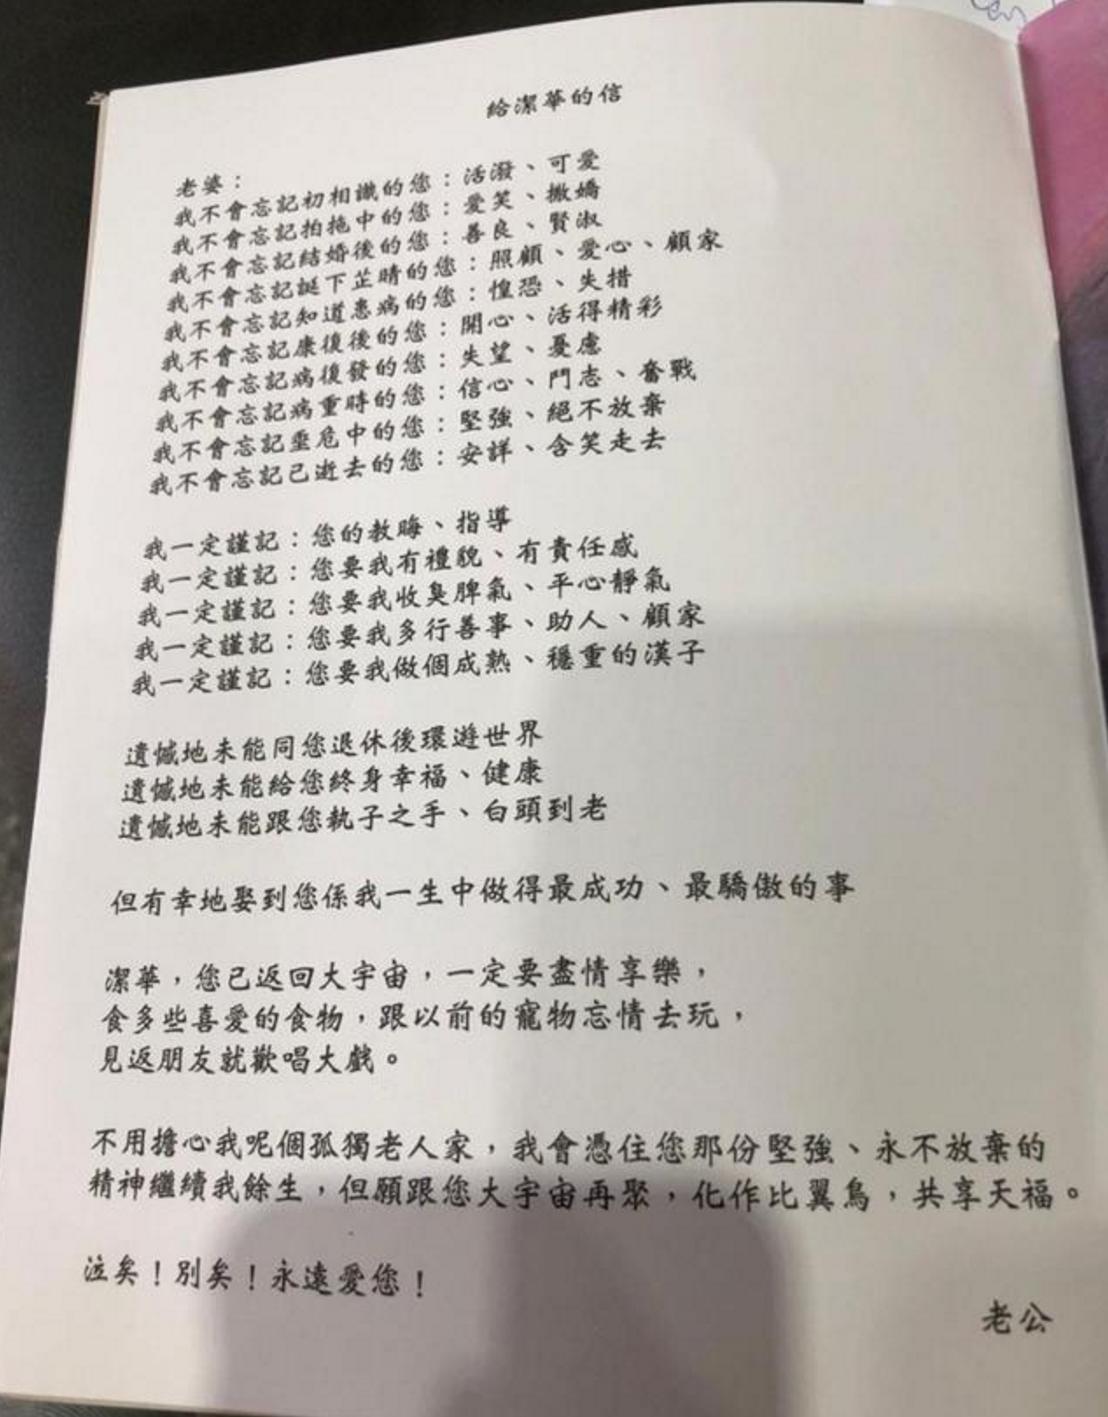 給潔華的信
老婆：
我不會忘記初相識的您：活潑、可愛
我不會忘記拍拖中的您：愛笑、撒嬌
我不會忘記結婚後的您：善良、賢淑
我不會忘記誕下芷晴的您：照顧、愛心、顧家
我不會忘記知道患病的您：惶恐、失措
我不會忘記康復後的您：開心、活得精彩
我不會忘記病復發的您：失望、憂慮
我不會忘記病重時的您：信心、鬥志、奮戰
我不會忘記垂危中的您：堅強、絕不放棄
我不會忘記已逝去的您：安詳、含笑走去
我一定謹記：您的教晦、指導
我一定謹記：您要我有禮貌、有責任感
我一定謹記：您要我收臭脾氣、平心靜氣
我一定謹記：您要我多行善事、助人、顧家
我一定謹記：您要我做個成熟、穩重的漢子
遺憾地未能同您退休後環遊世界
遺憾地未能給您終身幸福、健康
遺憾地未能跟您執子之手、白頭到老
但有幸地娶到您係我一生中做得最成功、最驕傲的事
潔華，您已返回大宇宙，一定要盡情享樂，
食多些喜愛的食物，跟以前的寵物忘情去玩，
見返朋友就歡唱大戲。
不用擔心我呢個孤獨老人家，我會憑住您那份堅強、永不放棄的
精神繼續我餘生，但願跟您大宇宙再聚，化作比翼鳥，共享天福。
泣矣！別矣！永遠愛您！
老公